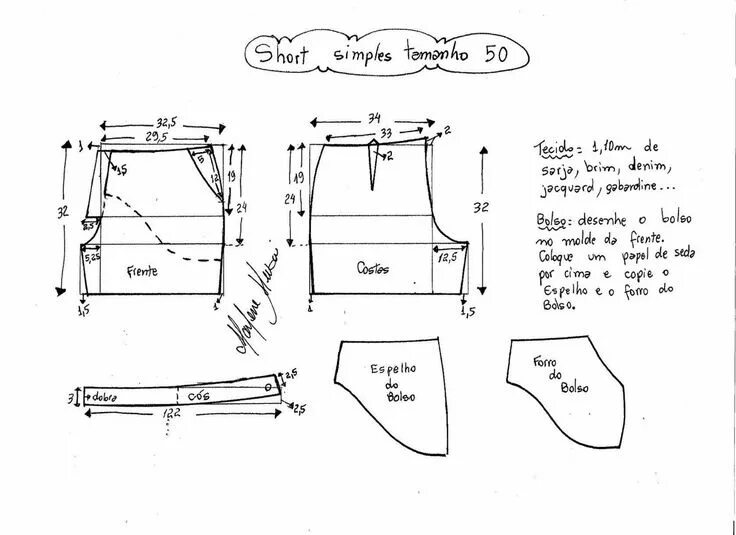 Short simples tamanho 50
32,5
29,5
1
15
5
12
19
24
32
2,5
5,25
Frente
1,5
1
34
33
2
2
19
24
32
12,5
Costas
1
1,5
Marlene Mukai
Tecido: 1,10m de
sarja, brim, denim,
jacquard, gabardine...
Bolso: desenhe o bolso
no molde da frente.
Coloque um papel de seda
por cima e copie o
Espelho e o forro do
Bolso.
3
dobra
cós
2,5
122
2,5
Espelho
do
Bolso
Forro
do
Bolso